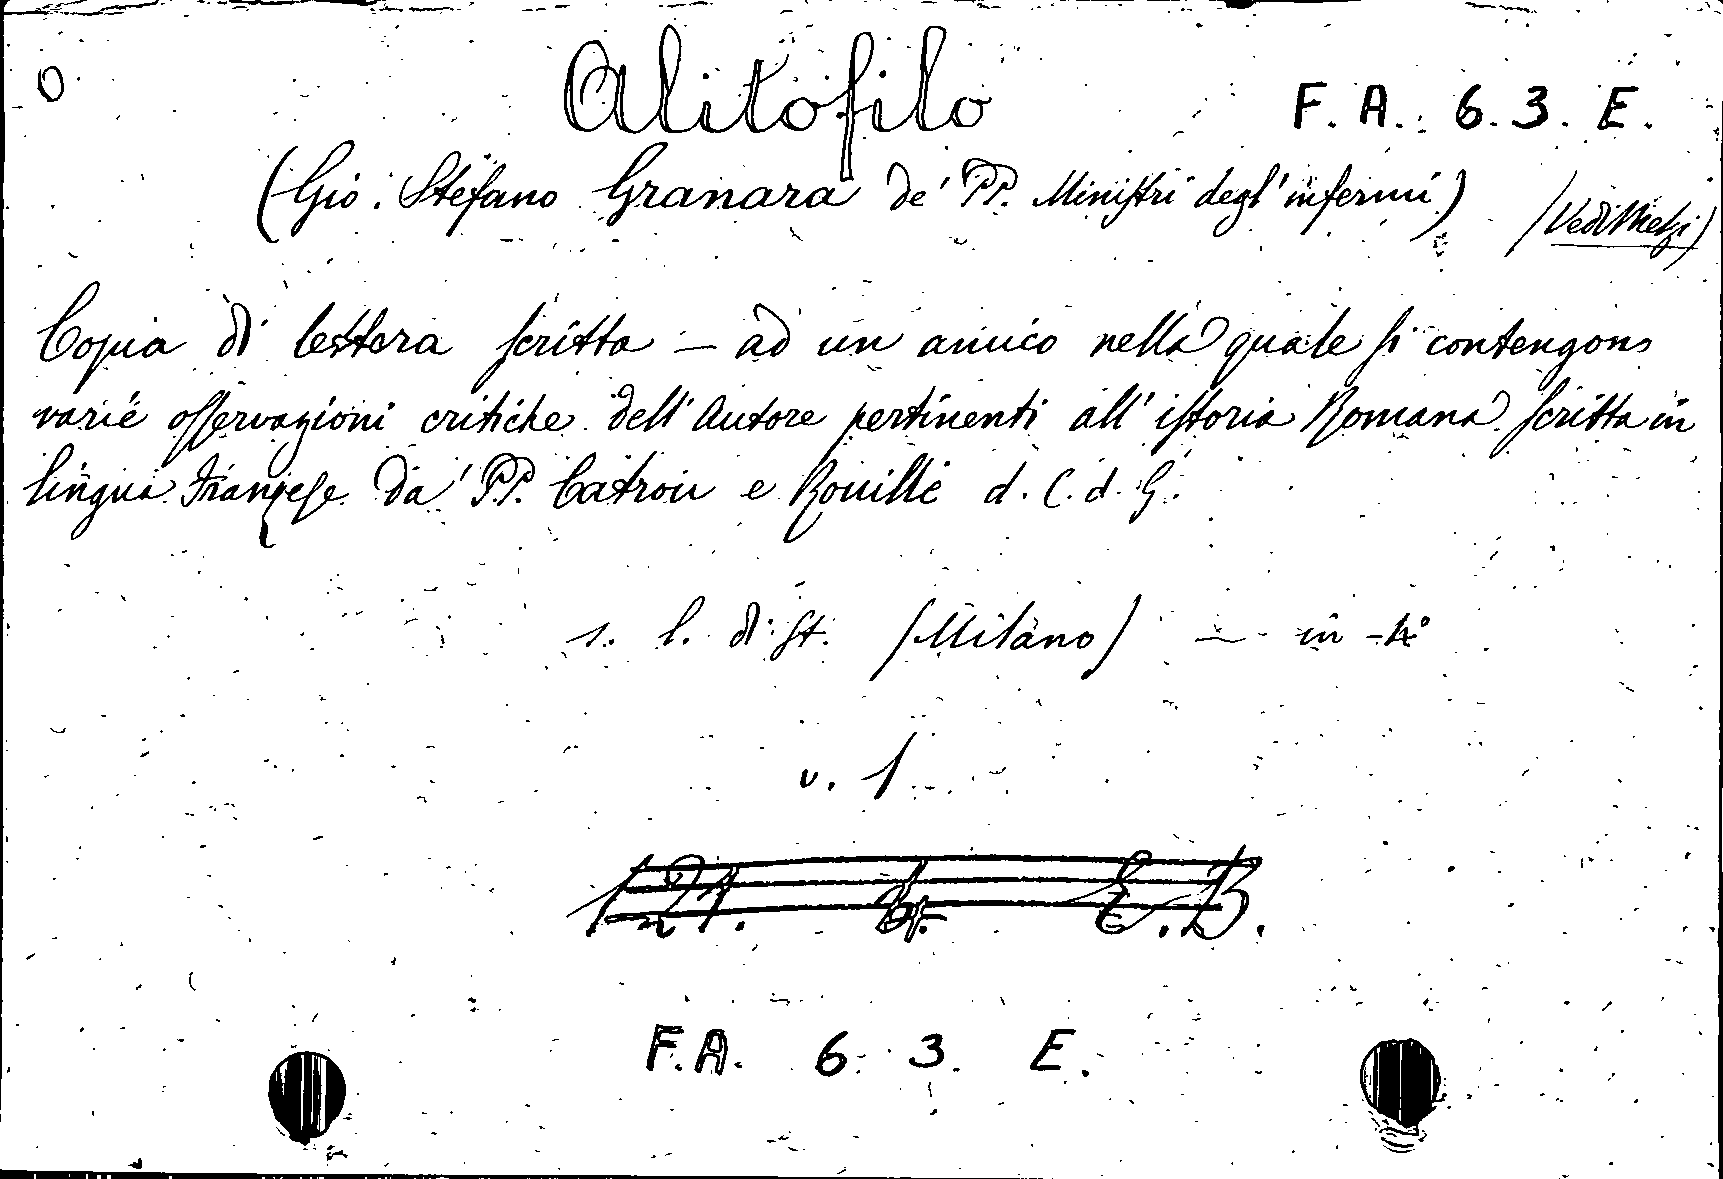 O
Alitofilo
F. A. 6. 3. E.
(Gio: Stefano Granara de' PP. Ministri degl'infermi) (Vedi Melzi)
Copia di lettera scritta — ad un amico nella quale si contengono
varie osservazioni critiche dell'Autore pertinenti all'istoria Romana scritta in
lingua Franzese da' PP. Catrou e Rouillé d. C. d. G.
s. l. di st. (Milano) — in -4°
v. 1
F.A. 6. 3. E.